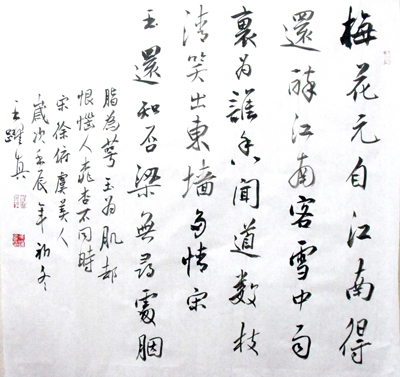 梅花元自江南得
還醉江南客雪中雨
裏为誰香聞道數枝
清笑出東墙多情宋
玉還知否梁無尋處胭
脂為萼玉為肌却
恨惱人桃杏不同時
宋徐俯虞美人
歲次壬辰年初冬
王躍真